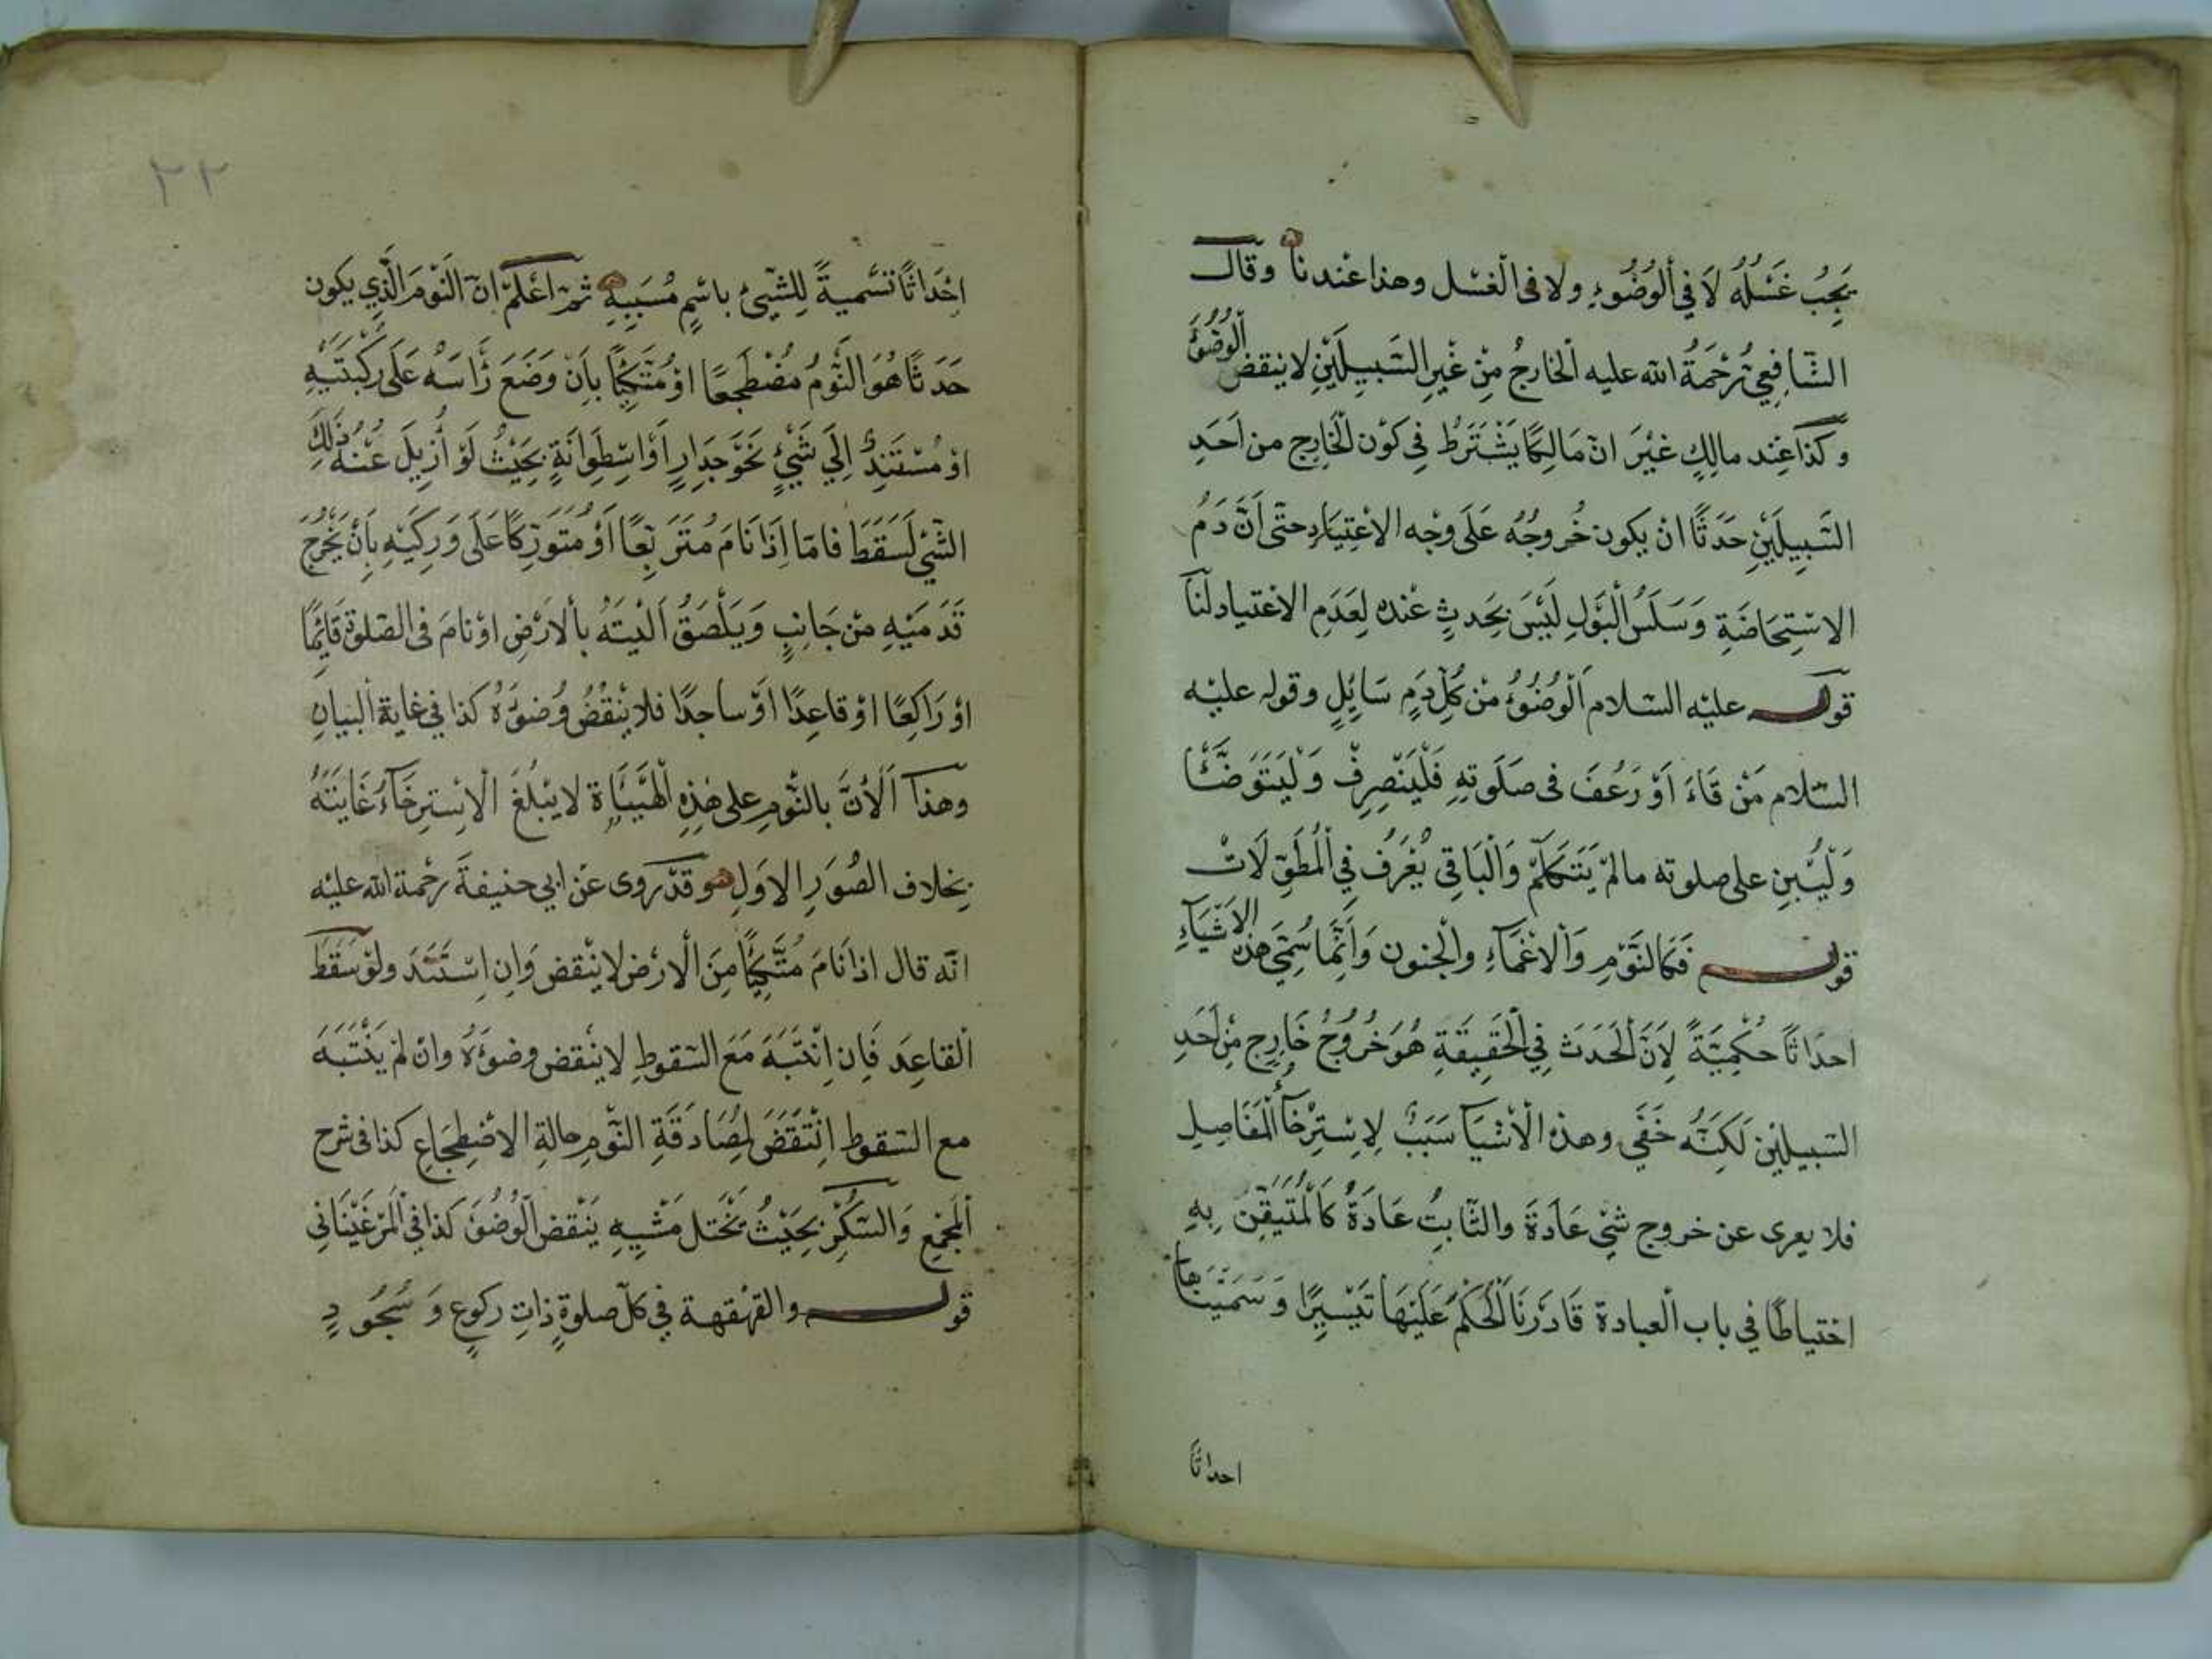 يَجِبُ غَسْلُهُ لَا فِي الْوُضُوءِ ولا فى الغسل وهذا عندنا وقال
الشَّافِعِي رَحْمَةُ الله عليه الخَارِجُ مِنْ غَيْرِ السَّبِيلَيْنِ لا ينقض الوُضُوءَ
وكَذَا عِنْد مالِكٍ غَيْرَ انّ مَالِكًا يَشْتَرَطُ فِي كَوْن الْخَارِج من اَحَدِ
السَّبِيلَيْنِ حَدَثًا انْ يكون خُرُوجُهُ عَلَى وجْه الاعْتِيَادِ حتّى اَنَّ دَمُ
الاسْتِحَاضَةِ وَسَلَسُ الْبَوْلِ لَيْسَ بِحَدثٍ عنْده لِعَدَمِ الاعْتياد لَنَا
قوله عليْه السّلام الْوُضُوُءُ مِنْ كُلِّ دَمٍ سَايِلٍ وقوله عليْه
السّلام مَنْ قَاءَ اَوْ رَعُفَ فى صَلَوتِهِ فَلْيَنْصِرِفْ وَلْيَتَوَضَّئْا
وَلْيَبْنِ على صلوته مالمْ يَتَكَلَّمْ وَالْبَاقِي يُعْرَفُ فِي الْمُطَوَّلَاتْ
قوله فَكَالنَّوْمِ وَالاغْمَآءِ والْجنون وَاِنَّمَا سُمِّيَ هذِه الاَشْيَآءِ
احدَاثًا حُكْمِيَّةً لِاَنَّ الْحَدَثَ فِي الْحَقِيقَةِ هُوَ خُرُوجُ خَارِجٍ مِنْ اَحَدِ
السّبِيلَيْن لَكِنَّهُ خَفَي وهذه الْاَشْيَآ سَبَبٌ لِاِسْتِرْخَآءِ الْمَفَاصِل
فلا يعرى عن خروج شَئٍ عَادَةً والثَّابِتُ عَادَةً كَالْمُتَيَقِّن بِهِ
احْتياطًا في باب الْعبادة فَادَرْنَا الْحُكْمَ عَلَيْهَا تَيْسِيرًا وَسَمَّيْنَاها
احداثًا
٢٢
اِحْدَاثًا تَسْمِيةً لِلشَّيئِ باسْمِ مُسَبَبِهِ ثمّ اعْلَمْ انّ النَّوْمَ الَّذِي يكون
حَدَثًا هُوَ النَّوْمُ مُضْطَجِعًا اوْ مُتَّكِئًا بِاَنْ وَضَعَ رَأسَهُ عَلَى رُكْبَتَيْهِ
اوْ مُسْتَنِدٌ اِلَي شَيْئٍ نَحْوَ جِدَارٍ اَوْ اسْطِوَانَةٍ بِحَيْثُ لَوْ أُزِيلَ عَنْهُ ذَلِكَ
الشّئ لَسَقَطَ فامّا اِذَا نَامَ مُتَرَبِّعًا اَوْ مُتَوَرِّكًا عَلَى وَرِكَيْهِ بِاَنْ يَخْرُجَ
قَدَمَيْهِ مِنْ جَانِبٍ وَيَلْصَقُ اَلْيَتَهُ بِالاَرْضِ اوْ نامَ فى الصّلوة قَائِمًا
اوْ رَاكِعًا اوْ قاعِدًا اَوْ ساجدًا فلا يَنْقُضُ وُضُوَءُهُ كذا في غايةِ البَيانِ
وهذا اَلْاَنَّ بالنَّوْمِ على هذِهِ الْهَيْئَاة لا يَبْلُغَ الْاِسْتِرخَآءُ غَايتَهُ
بِخلاف الصُوَرِ الاوَلِ وقدْ روى عَنْ ابي حنيفةَ رحْمة الله عليْه
انّه قال اذا نَامَ مُتَّكِئًا مِنَ الْارْض لا ينْقض وَاِن اِسْتَنَدَ ولوْ سَقَطَ
الْقاعِدَ فَاِن اِنْتَبَهَ مَعَ السّقوطِ لا ينْقض وضوَءُهُ وانْ لمْ يَنْتَبَهَ
مع السّقوط انْتَقَضَ لِمُصَادَقَةِ النّوْمِ حالةِ الاضْطِجَاعِ كذا فى شرح
الْمَجْمَعِ وَالسّكْرُ بِحَيْثُ يَخْتل مَشْيِهِ يَنْقض الْوُضُوَ كَذا فِي الْمَرْغَيْنَانِي
قوله والقهْقهة فِي كلّ صلوةٍ ذاتِ ركوعٍ وَسُجُودٍ